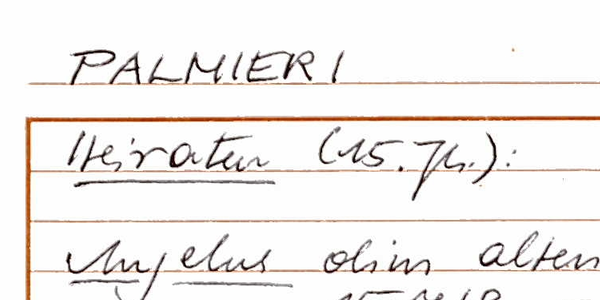 PALMIERI
Heiraten (15. Jh.):
Angelus olim alten